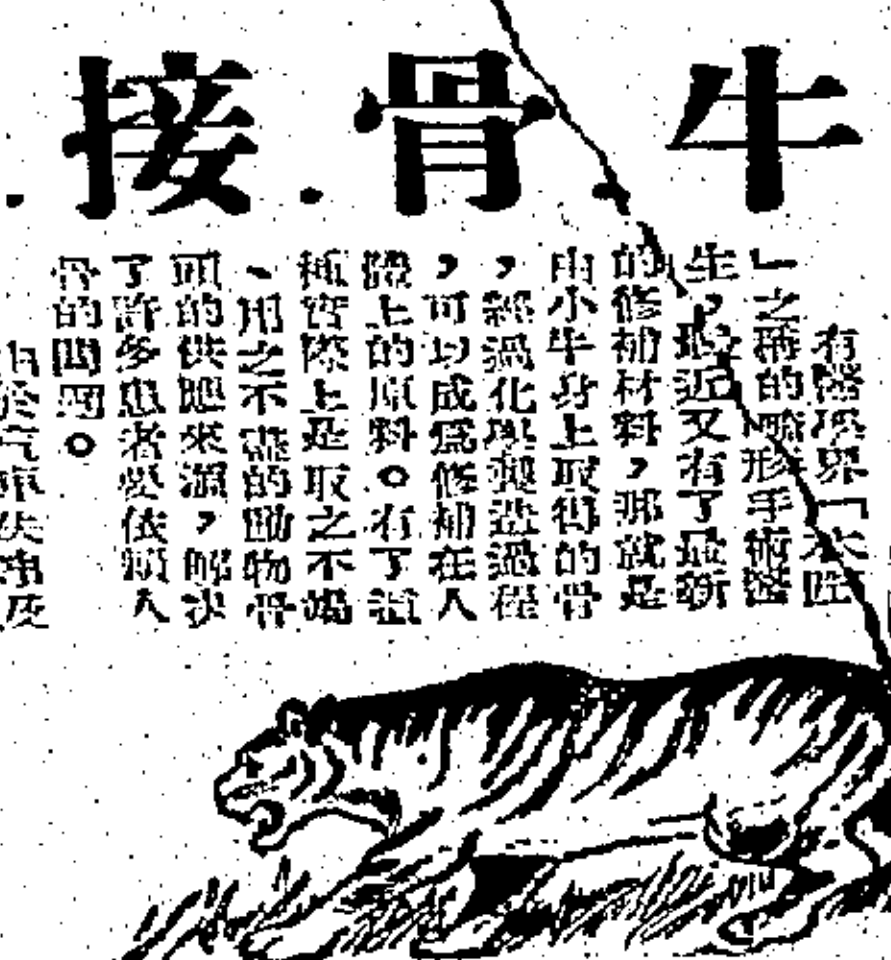 牛・骨・接・
有醫學界「木匠
」之稱的畸形手術醫
生，最近又有了最新
的修補材料，那就是
由小牛身上取得的骨
，經過化學製造過程
，可以成爲修補在人
體上的原料。有了這
種實際上是取之不竭
、用之不盡的動物骨
頭的供應來源，解決
了許多患者要依賴人
骨的問題。
由於汽車失事及